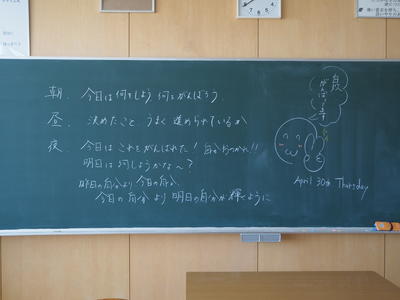 朝. 今日は何をしよう 何をがんばろう
昼. 決めたこと うまく 進められているか
夜. 今日はこれをがんばれた! 自分おつかれ!!
明日は何しようかな〜?
昨日の自分より 今日の自分
今日の自分 より 明日の自分が 輝くように
April 30th Thursday